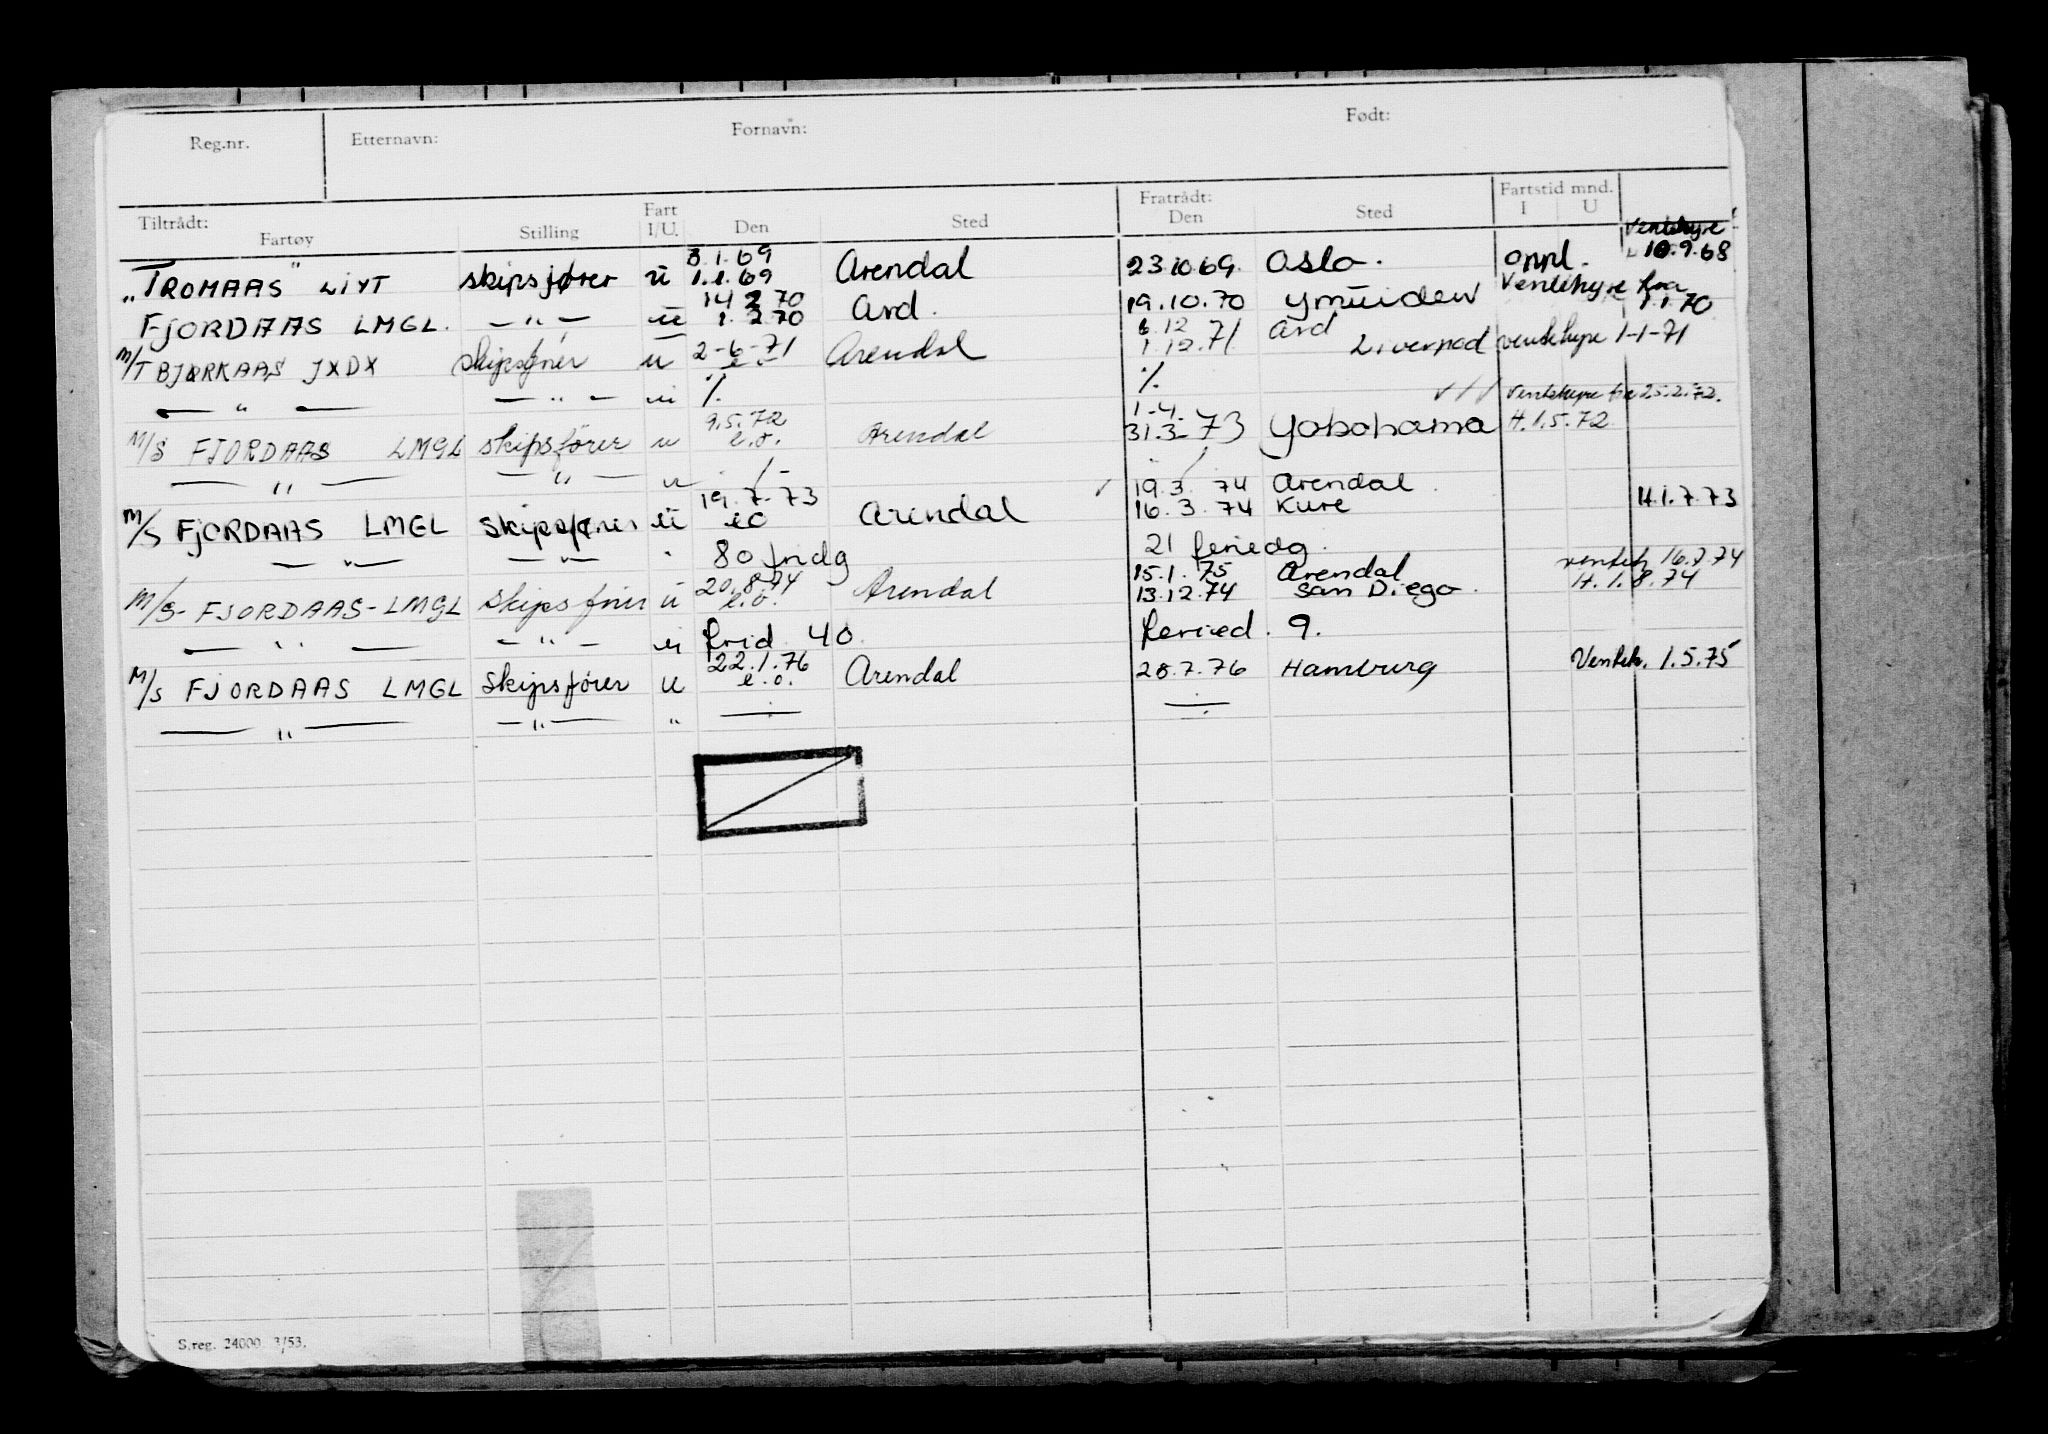 Reg.nr. Etternavn: Fornavn: Født:
Tiltrådt: Fratrådt: Fartstid mnd.
Fartøy Stilling Fart I/U. Den Sted Den Sted I U
Ventehyre
10.9.68
3.1.69
"TROMAAS" LIYT skipsfører u 1.1.69 Arendal 23.10.69. Oslo. oppl.
14 2 70 Ventehyre fra
FJORDAAS LMGL. — " — u 1.2.70 Ard. 19.10.70 Ymuiden 1.1.70
6.12 Ard
M/T BJØRKAAS JXDX Skipsfører u 2-6-71 Arendal 1.12.71 Liverpool ventehyre 1-1-71
— " — — " — u ·/. ·/. Ventehyre fra 25.2.72.
9.5.72 1-4-
M/S FJORDAAS LMGL skipsfører u e.o. Arendal 31.3-73 Yokohama H.1.5.72
— " — — " — u
19.7.73 19.3.74 Arendal
M/S FJORDAAS LMGL skipsfører u eo Arendal 16.3.74 Kure H.1.7.73
— " — — " — " 80 fridg 21 feriedg.
20.8.74 15.1.75 Arendal venteh 16.7.74
M/S- FJORDAAS-LMGL skipsfører u e.o. Arendal 13.12.74 San Diego. H.1.8.74
— " — — " — u frid. 40 feried. 9.
22.1.76
M/S FJORDAAS LMGL Skipsfører u e.o. Arendal 28.7.76 Hamburg Venteh. 1.5.75
— " — — " — "
S.reg. 24000. 3/53.